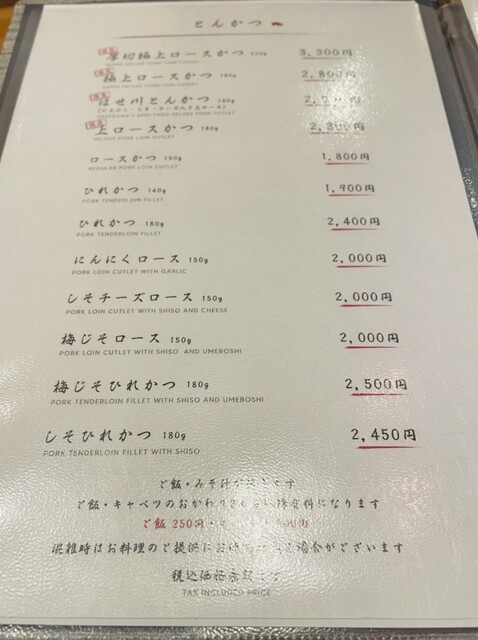 とんかつ
厚切極上ロースかつ 3,300円
極上ロースかつ 180g
はせ川とんかつ 180g
上ロースかつ 180g 2,300円
DELUXE PORK LOIN CUTLET
ロースかつ 130g 1,800円
REGULAR PORK LOIN CUTLET
ひれかつ 140g 1,900円
PORK TENDERLOIN FILLET
ひれかつ 180g 2,400円
PORK TENDERLOIN FILLET
にんにくロース 150g 2,000円
PORK LOIN CUTLET WITH GARLIC
しそチーズロース 150g 2,000円
PORK LOIN CUTLET WITH SHISO AND CHEESE
梅じそロース 150g 2,000円
PORK LOIN CUTLET WITH SHISO AND UMEBOSHI
梅じそひれかつ 180g 2,500円
PORK TENDERLOIN FILLET WITH SHISO AND UMEBOSHI
しそひれかつ 180g 2,450円
PORK TENDERLOIN FILLET WITH SHISO
ご飯・みそ汁
ご飯・キャベツのおかわり になります
ご飯 250円・
混雑時はお料理のご提供に 場合がございます
税込価格
TAX INCLUDED PRICE